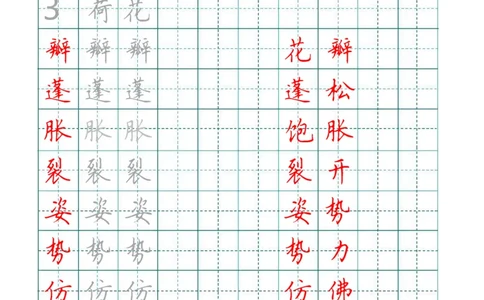 3 荷花
瓣瓣瓣 花瓣
蓬蓬蓬 蓬松
胀胀胀 饱胀
裂裂裂 裂开
姿姿姿 姿势
势势势 势力
仿仿仿 仿佛